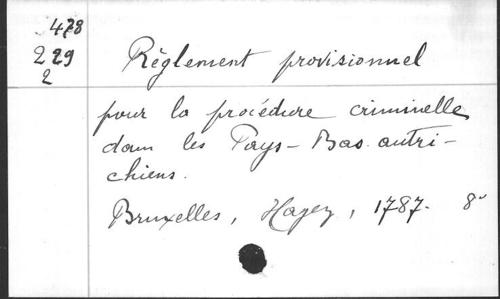 478
229
2
Règlement provisionnel
pour la procédure criminelle
dans les Pays-Bas autri-
chiens.
Bruxelles, Hayez, 1787. 8°